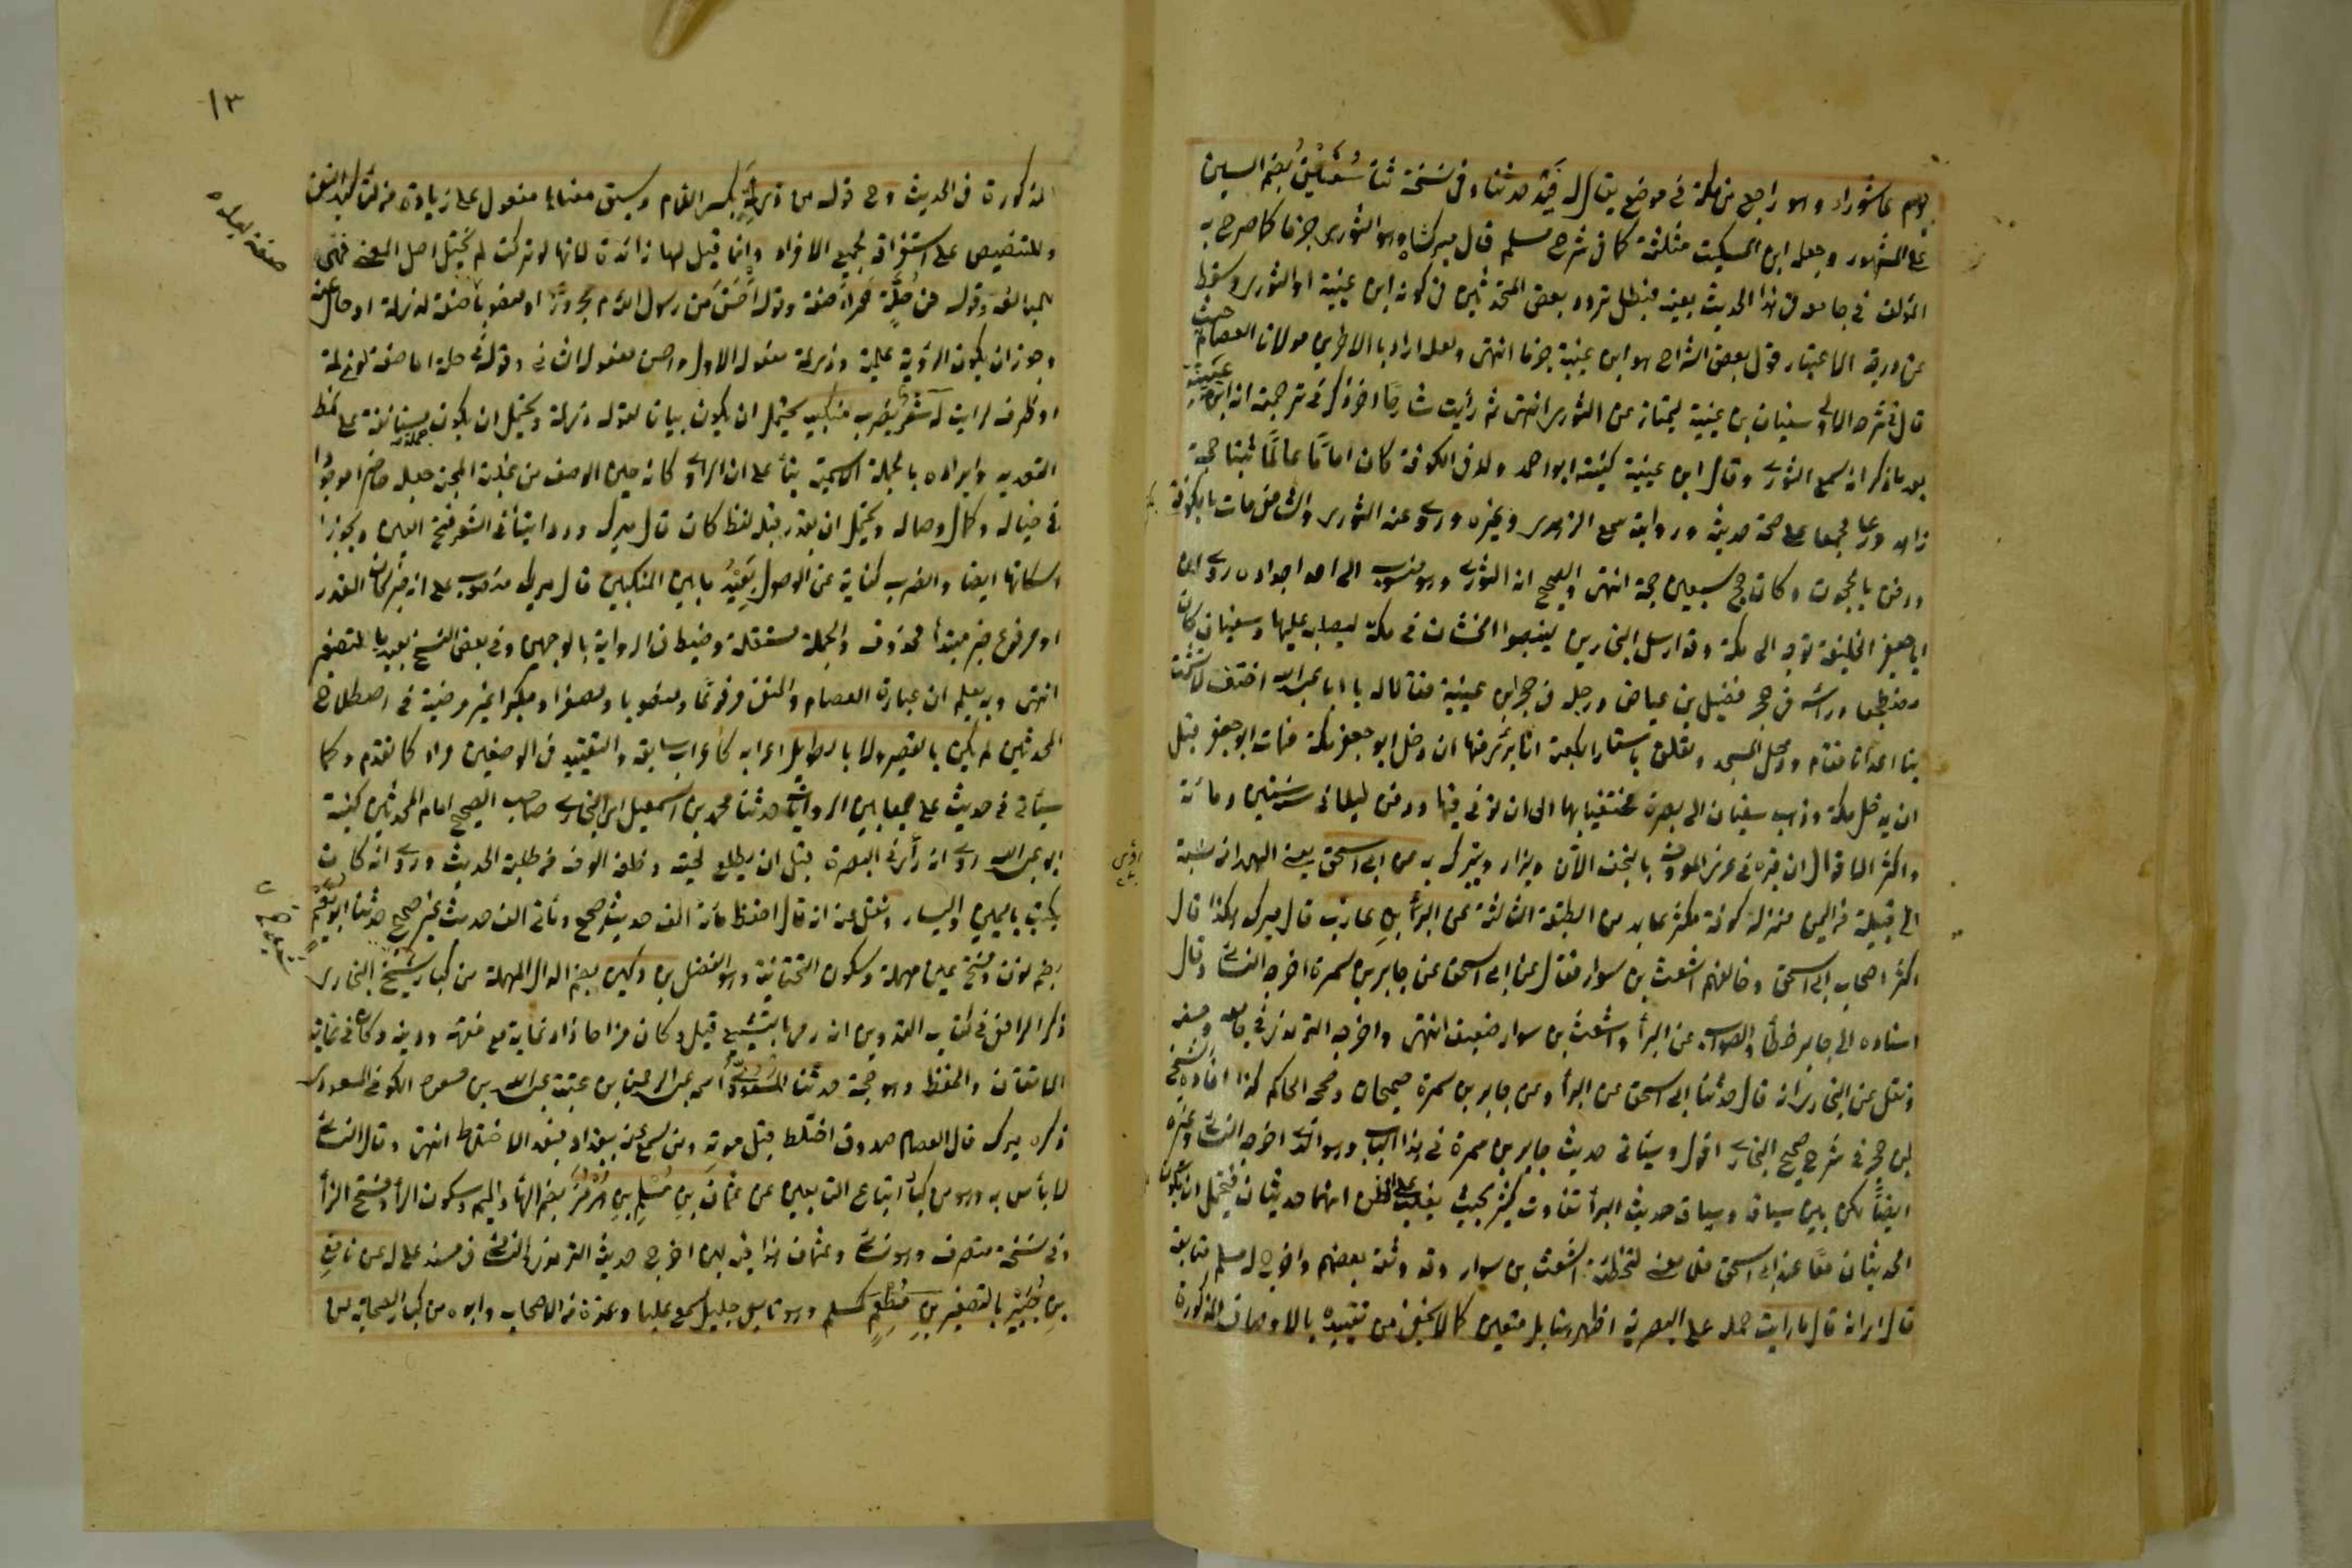 يوم عاشوراء وهو راجع من مكة في موضع يقال له فيد حدثنا وفي نسخة ثنا سفيان بضم السين
على المشهور وجعله ابن السكيت مثلثة كما في شرح مسلم قال ميركشاه وهو الثوري جزما كما صرح به
المؤلف في جامعه في هذا الحديث بعينه فبطل تردد بعض المحدثين في كونه ابن عيينة او الثوري وسقط
عن درجة الاعتبار قول بعض الشراح هو ابن عيينة جزما انتهى ولعله اراد بالاولين مولانا العصام حيث
قال في شرحه الى سفيان بن عيينة ليمتاز عن الثوري انتهى ثم رأيت شارحا اخر ذكر في ترجمته انه ابن عيينة
بعد ما ذكر انه سمع الثوري وقال ابن عيينة كنيته ابو احمد ولد في الكوفة كان اماما عالما ثبتا حجة
زاهد ورعا مجمعا على صحة حديثه وروايته سمع الزهري وغيره وروى عنه الثوري والشافعي مات بالكوفة
ودفن بالحجون وكان حج سبعين حجة انتهى والصحيح انه الثوري وهو منسوب الى احد اجداده روى ان
ابا جعفر الخليفة توجه الى مكة وقد ارسل النجارين لينصبوا الخشبات في مكة ليصلبه عليها وسفيان كان
مضطجعا ورأسه في حجر فضيل بن عياض ورجله في حجر ابن عيينة فقالا له يا ابا عبد الله اختف لا تشمت
بنا اعداءنا فقام ودخل المسجد وتعلق باستار الكعبة انا برئ منها ان دخل ابو جعفر مكة فمات ابو جعفر قبل
ان يدخل مكة وذهب سفيان الى بصرة مختفيا بها الى ان توفي فيها ودفن ليلا في سنة ستين ومائة
واكثر الاقوال ان قبره في بالنجف الآن ويزار ويتبرك به عن ابى اسحق يعني الهمداني نسبة
الى قبيلة من اليمن منزله كوفة مكثر عابد من الطبقة الثالثة عن البرأ بن عازب قال ميرك هكذا قال
اكثر اصحاب ابى اسحق وخالفهم اشعث بن سوار فقال عن ابى اسحق عن جابر بن سمرة اخرجه النسائى وقال
اسناده الى جابر خطأ والصواب عن البرأ واشعث بن سوار ضعيف انتهى واخرجه الترمذي في جامعه وحسنه
ونقل عن البخاري انه قال حديثا ابى اسحق عن البرأ وعن جابر بن سمرة صحيحان وصححه الحاكم كذا افاده الشيخ
ابن حجر في شرح صحيح البخارى اقول وسيأتي حديث جابر بن سمرة في هذا الباب وهو الذى اخرجه النسائى وغيره
ايضا لكن بين سياقه وسياق حديث البرأ تفاوت كثير بحيث يغلب على الظن انهما حديثان فيحتمل ان يكون
الحديثان معا عند ابى اسحق فلا معنى لتخطئة اشعث بن سوار وقد وثقه بعضهم واخرج له مسلم متابعة
قال اى انه قال ما رايت حمله على البصرية اظهر بل متعين كما لا يخفى من تقييده بالاوصاف المذكورة
١٣
المذكورة في الحديث وح قوله من ذي لمة بكسر اللام وسبق معناها مفعول على زيادة من لتأكيد النفي
وللتنصيص على استغراق لجميع الافراد وانما قيل لها زائدة لانها لو تركت لم يختل اصل المعنى فهى
للمبالغة وقوله فى حلة حمرأ صفة وقوله احسن من رسول الله م مجرورا او منصوبا صفة لذى لمة او حال عنه
وجوز ان يكون الرؤية علمية وذى لمة مفعوله الاول واحسن مفعوله الثاني وقوله في حلة اما صفة لذى لمة
او ظرف لرايت له شعر يضرب منكبيه يحتمل ان يكون بيانا لقوله ذى لمة ويحتمل ان يكون جملة مستأنفة على نمط
التعديد وايراده بالجملة الاسمية بنأ على ان الراوى كانه حين الوصف من غلبة المحبة جعله حاضرا موجودا
في خياله وكمال وصاله ويحتمل ان يقدر قبله لفظ كان قال ميرك وروايتنا في الشعر فتح العين ويجوز
اسكانها ايضا والضرب كناية عن الوصول بعيد ما بين المنكبين قال ميرك منصوب على انه خبر كان المقدر
او مرفوع خبر مبتدأ محذوف والجملة مستقلة وضبط في الرواية بالوجهين وفي بعض النسخ بعيد بالتصغير
انتهى وبه يعلم ان عبارة العصام والمتن مرفوعا ومنصوبا ومصغرا ومكبرا غير مرضية في اصطلاح
المحدثين لم يكن بالقصير ولا بالطويل اعرابه كاعراب سابقه والتقييد في الوصفين مراد كما تقدم وكما
سيأتي في حديث على جمعا بين الروايات حدثنا محمد بن اسمعيل اى البخاري صاحب الصحيح امام المحدثين كنيته
ابو عبد الله روى انه رأى في البصرة قبل ان يطلع لحيته وخلفه الوف من طلبة الحديث وروى انه كان
يكتب باليمين واليسار ونقل عنه انه قال احفظ مائة الف حديث صحيح ومأتي الف حديث غير صحيح حدثنا ابو نعيم
بضم نون وفتح عين مهملة وسكون التحتانية وهو الفضل بن دكين بضم الدال المهملة من كبار شيوخ البخاري
ذكر الرافعى في كتاب التدوين انه رمى بالتشيع قيل وكان مزاحا ذا دعابة مع فقهه ودينه وكان في غاية
الاتقان والحفظ وهو حجة حدثنا المسعودى اسمه عبد الرحمن بن عتبة بن عبد الله بن مسعود الكوفي المسعودى
ذكره ميرك قال العصام صدوق اختلط قبل موته ومن سمع منه ببغداد فبعد الاختلاط انتهى وقال النسائى
لا بأس به وهو من كبار اتباع التابعين عن عثمان بن مسلم بن هرمز بضم الهاء والميم وسكون الرأ وفتح الزأ
وفي نسخة منصرف وعثمان هذا فيه لين اخرج حديثه الترمذى والنسائى في مسند على له عن نافع
بن جبير بالتصغير بن مطعم كمسلم وهو تابعى جليل سمع عليا وعدة من الاصحاب وابوه من كبار الصحابة عن